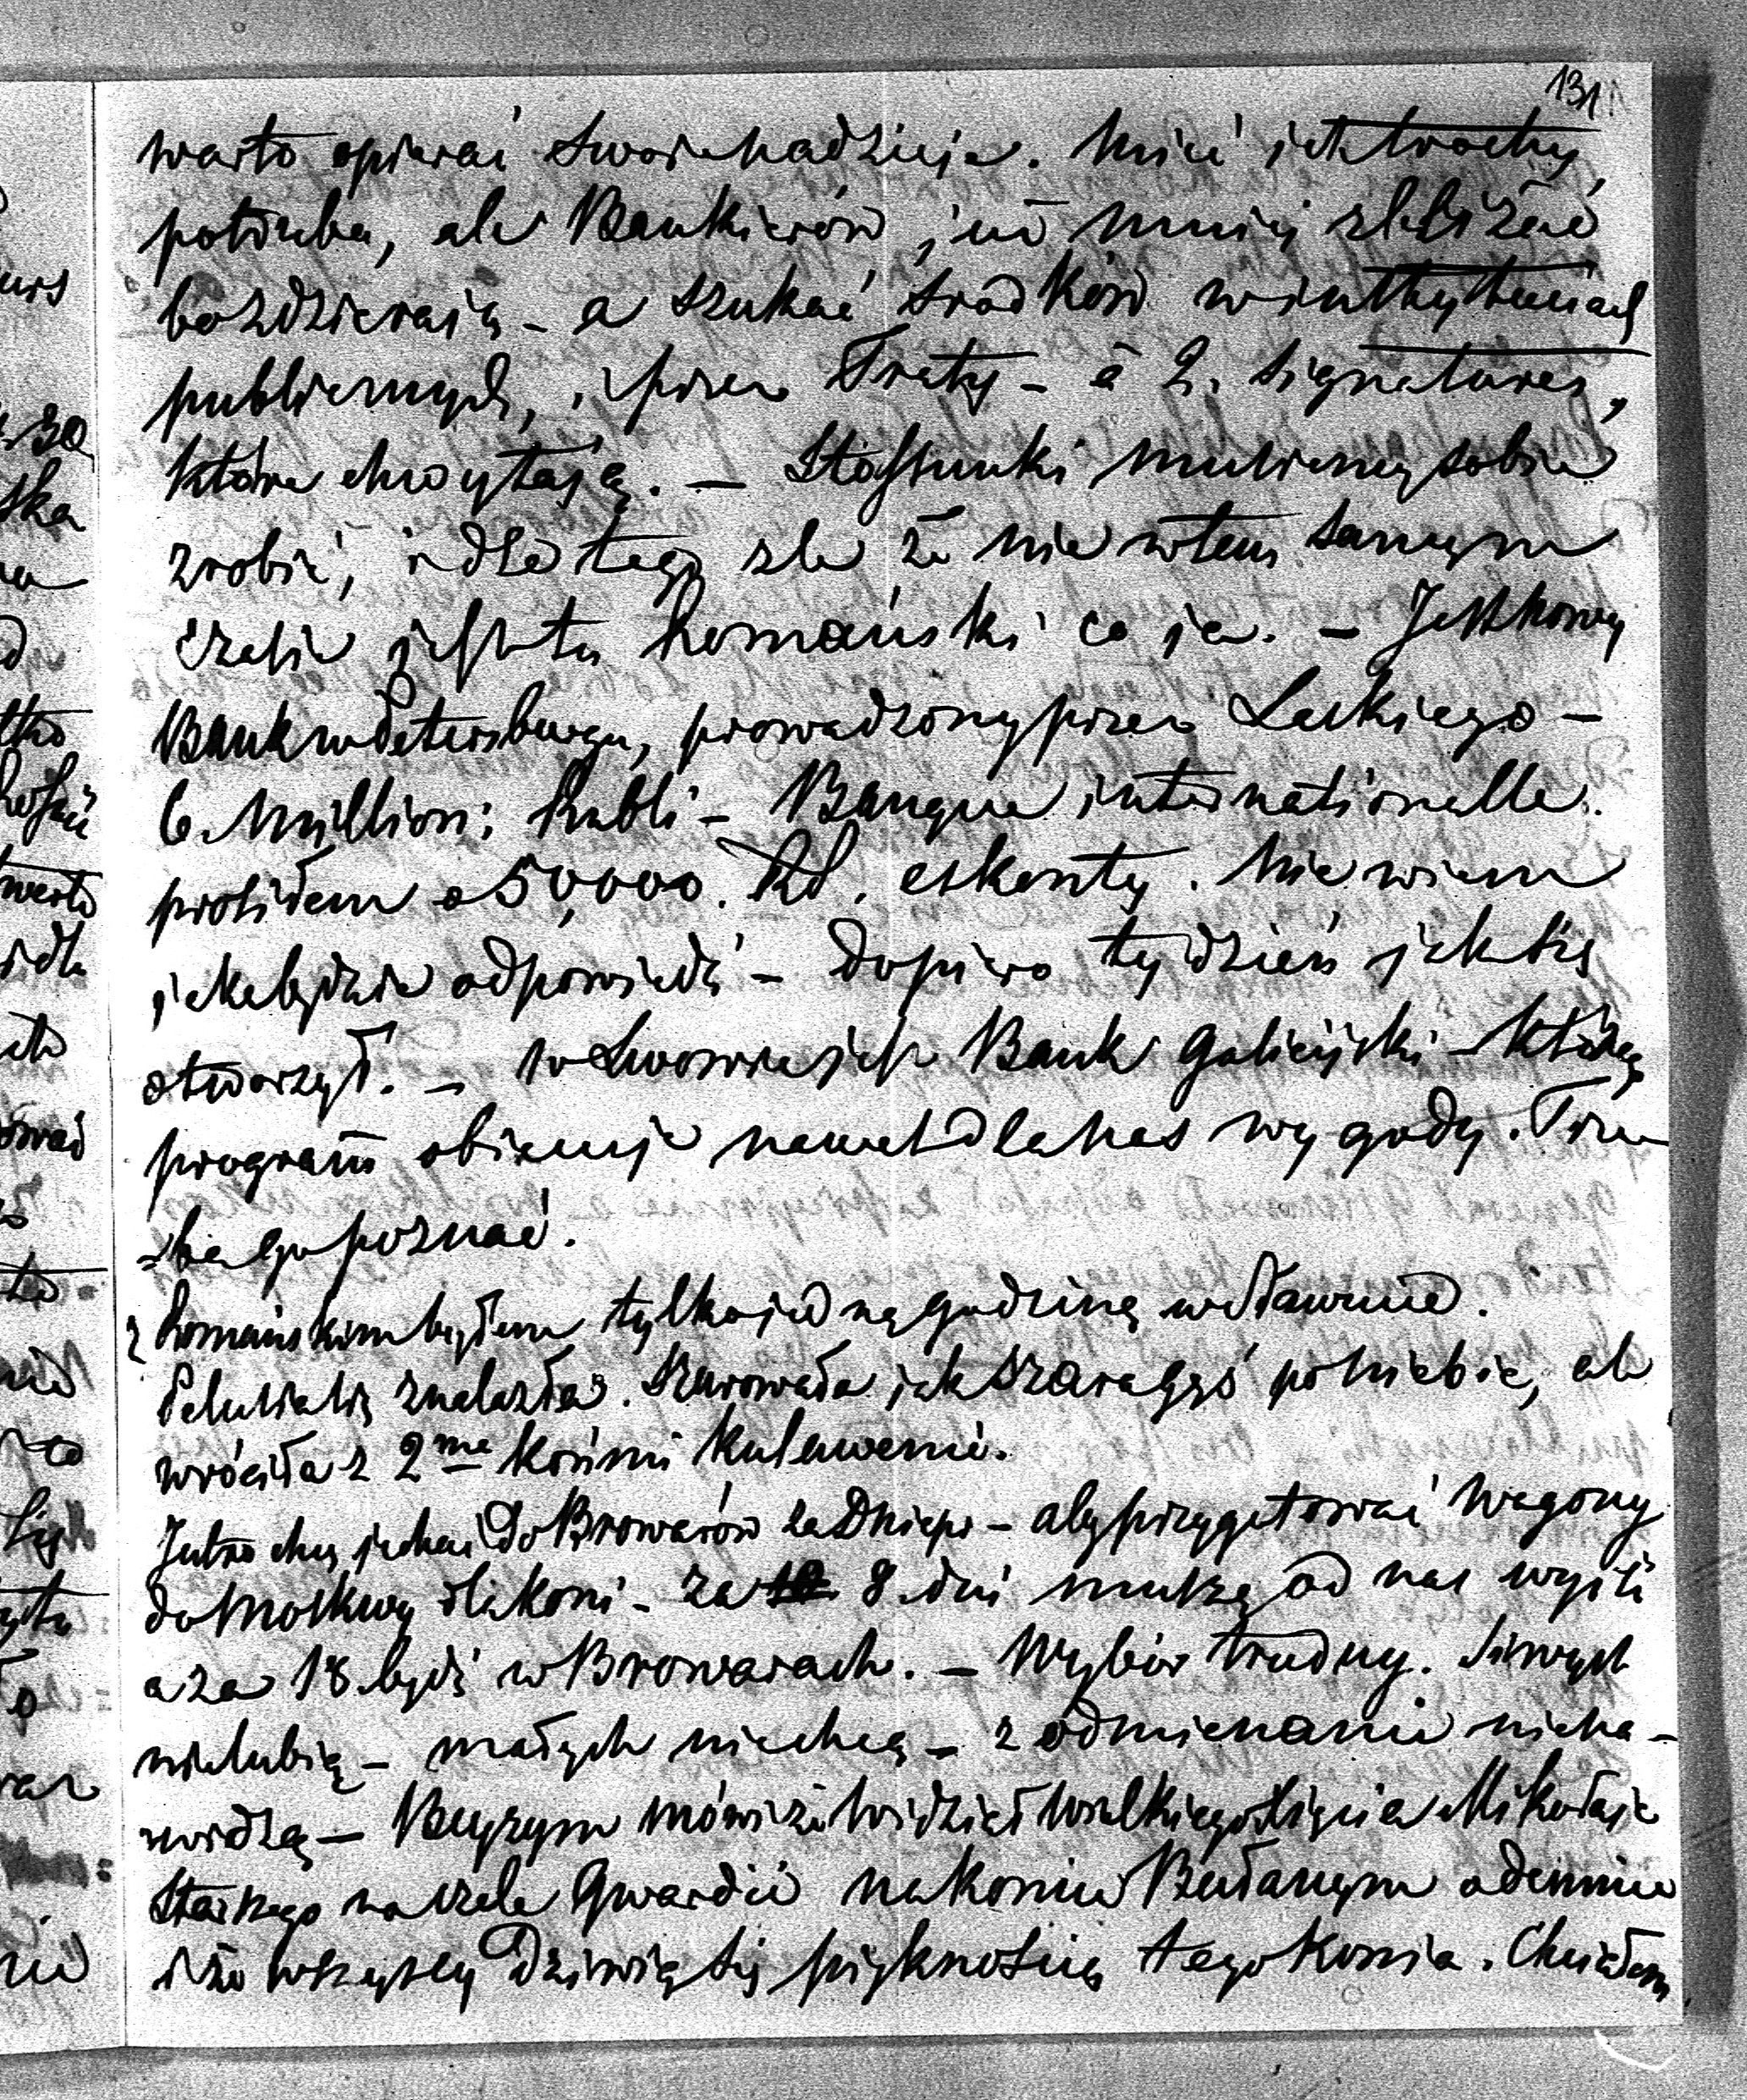 131
warto opierać swoie nadzieje. Mieć ich trochę
potrzeba, ale Bankierów już mniej zbliżać
bo zdzierają – a szukać środków w instytucjach
publicznych, i przez Traty – à 2. signatures,
które chwytają. – Stosunki musiemy sobie
zrobić, i dla tego źle że nie w tem samym
czasie jest tu Romański co ja. – Jest nowy
Bank w Petersburgu, prowadzony przez Laskiego –
6. Million: Rubli – Banque internationalle.
prosiłem o 50,000. RS. eskonty. Nie wiem
jaka będzie odpowiedź – dopiero tydzień jak się
otworzył. – w Lwowie jest Bank Galicijski – którego
program obiecuje nawet dla nas wygody. Trze-
=ba go poznać.
z Romańskim byłem tylko jedną godzinę w Sławucie.
się znalazła. jak po niebie, ale
wróciła z 2ma końmi kulawemi.
Jutro chcę jechać do Browarów za Dniepr – aby przygotować wagony
do Moskwy dla koni – za 8. dni muszą od nas wyjść
a za 18 być w Browarach. – Wybór trudny. Siwych
nie lubią – małych nie chcą – z odmienami niena-
widzą – Beyzym mówi że widział Wielkiego Xięcia Mikołaja
Starszego na czele Gwardii na koniu Bułanym odemnie
i że wszyscy dziwią się pięknością tego konia. Chciałem